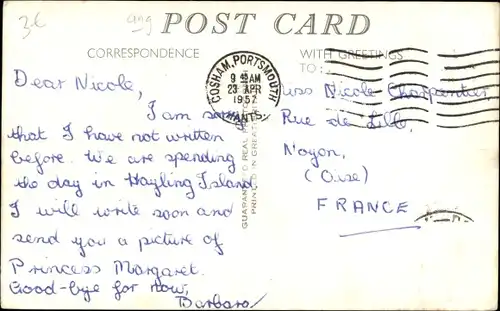 3£ ang
POST CARD
CORRESPONDENCE
WITH GREETINGS
TO:
COSHAM, PORTSMOUTH
9 AM
23 APR
1957
HANTS.
Dear Nicole,
I am sorry
that I have not written
before. We are spending
the day in Hayling Island
I will write soon and
send you a picture of
Princess Margaret.
Good-bye for now,
Barbara
GUARANTEED REAL
PRINTED IN GREAT
Miss Nicole Charpentier,
Rue de Lille,
Noyon,
(Oise)
FRANCE